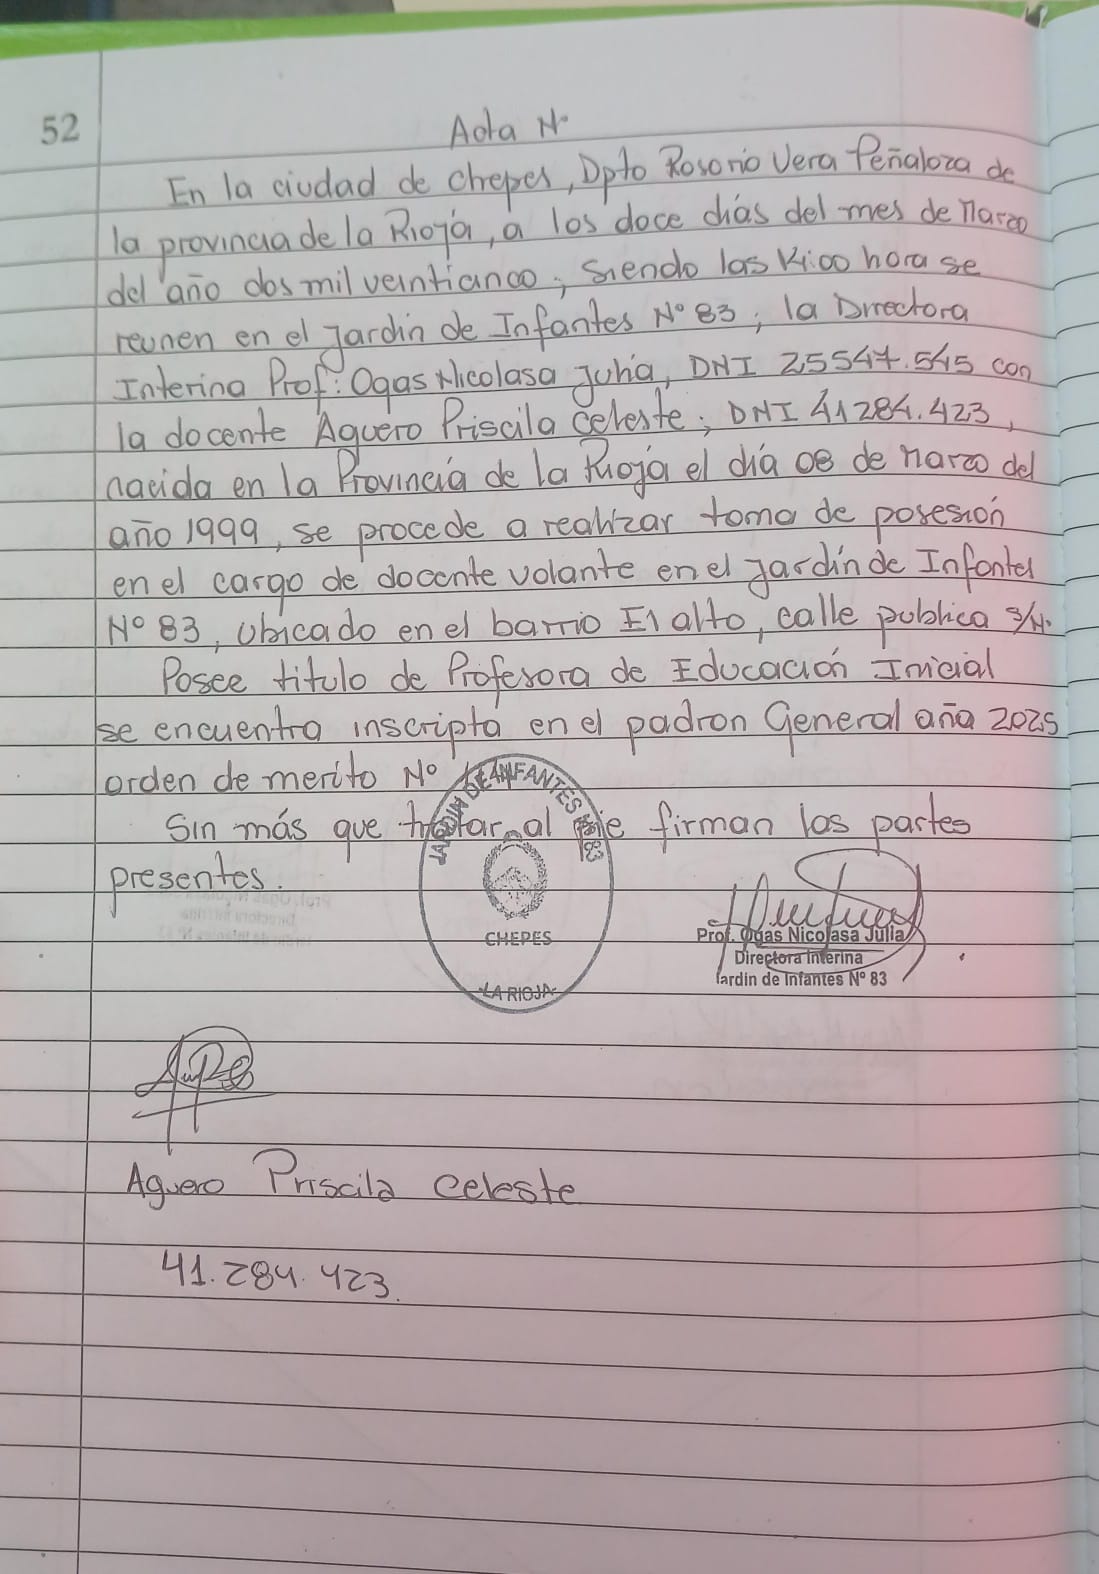 52
Acta N°
En la ciudad de Chepes, Dpto Rosario Vera Peñaloza de
la provincia de la Rioja, a los doce días del mes de Marzo
del año dos mil veinticinco, siendo las hora se
reunen en el Jardin de Infantes N° 83, la Directora
Interina Prof: Ogas Nicolasa Julia, DNI 25547.545 con
la docente Aguero Priscila Celeste, DNI 41284.423,
nacida en la Provincia de la Rioja el día 08 de Marzo del
año 1999, se procede a realizar toma de posesión
en el cargo de docente volante en el Jardín de Infantes
N° 83, Ubicado en el barrio El alto, calle publica S/N.
Posee titulo de Profesora de Educación Inicial
se encuentra inscripta en el padron General año 2025
orden de merito N°
Sin más que tratar al pie firman las partes
presentes.
JARDIN DE INFANTES N° 83
CHEPES
LA RIOJA
Prof. Ogas Nicolasa Julia
Directora Interina
Jardin de Infantes N° 83
Aguero Priscila Celeste
41.284.423.